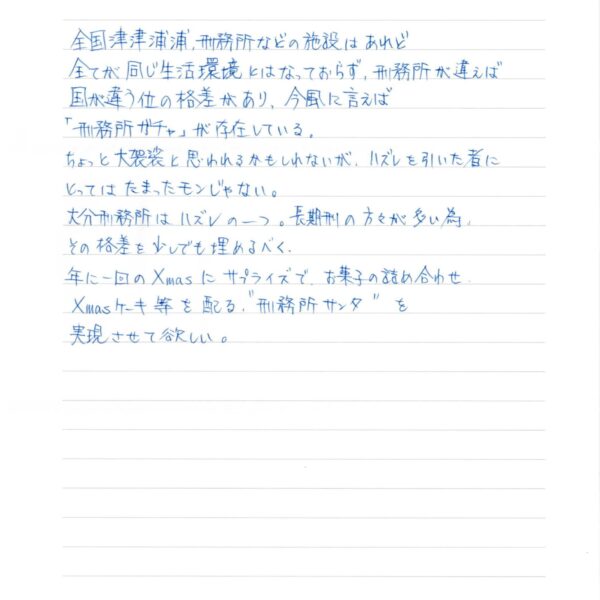 全国津津浦浦、刑務所などの施設はあれど
全てが同じ生活環境とはなっておらず、刑務所が違えば
国が違う位の格差があり、今風に言えば
「刑務所ガチャ」が存在している。
ちょっと大袈裟と思われるかもしれないが、ハズレを引いた者に
とってはたまったモンじゃない。
大分刑務所はハズレの一つ。長期刑の方々が多い為、
その格差を少しでも埋めるべく、
年に一回のXmasにサプライズで、お菓子の詰め合わせ、
Xmasケーキ等を配る、"刑務所サンタ"を
実現させて欲しい。